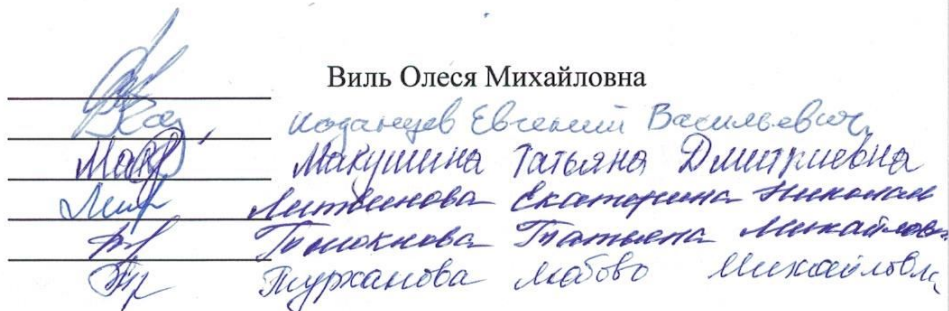 Виль Олеся Михайловна
Коданцев Евгений Васильевич
Макушина Татьяна Дмитриевна
Литвинова Екатерина Николаев
Татьяна Михайловн
Турханова Любовь Михайловна